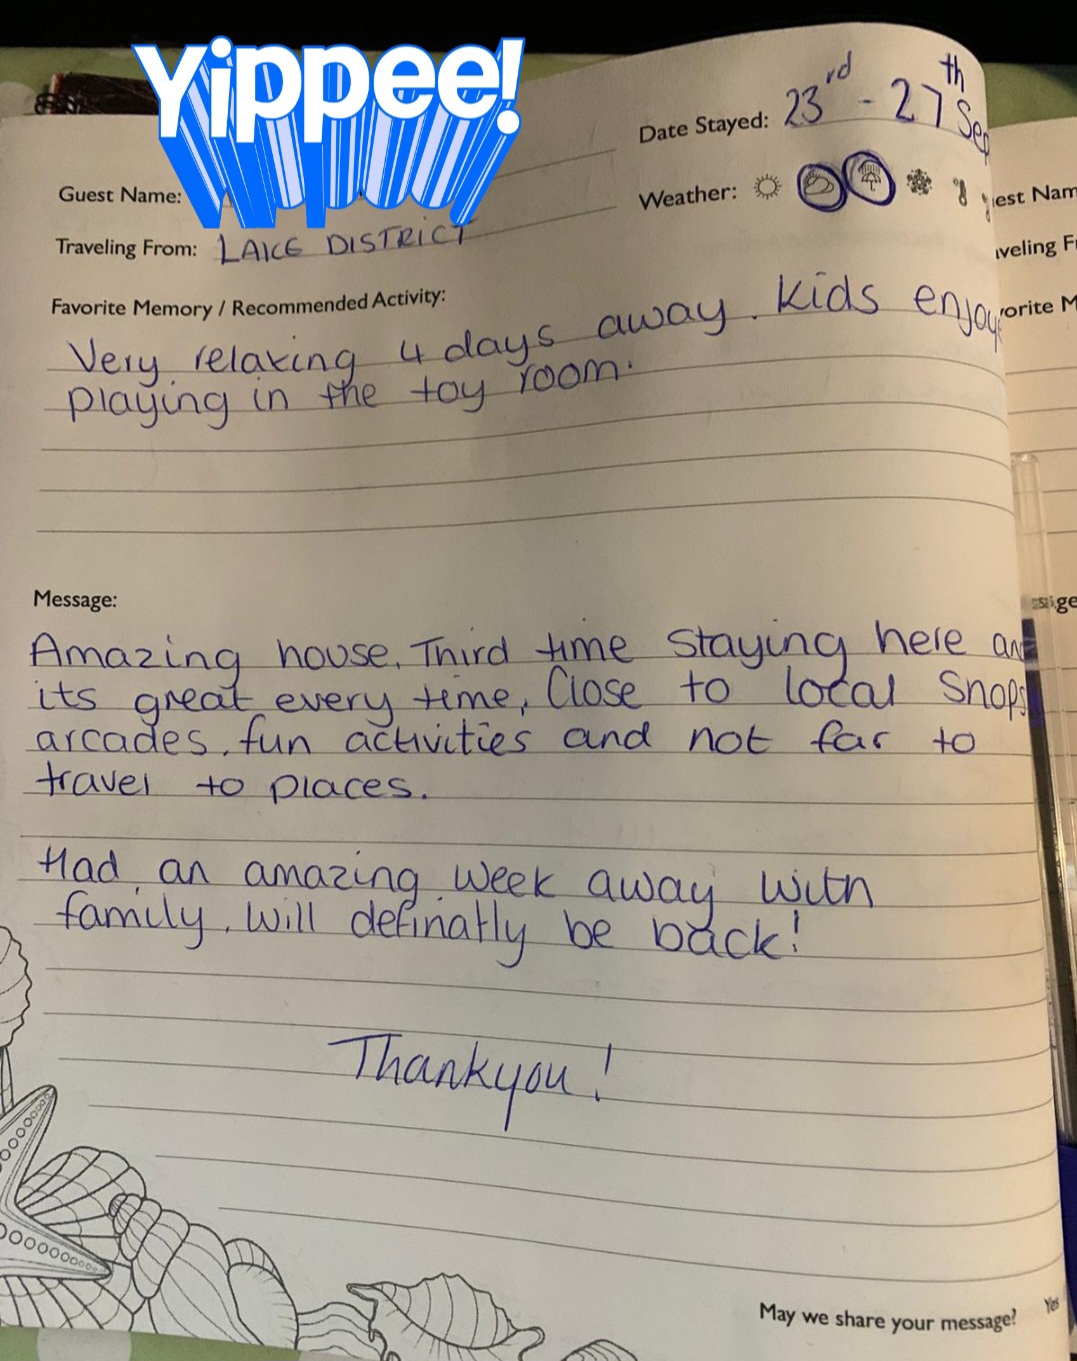 Yippee!
Date Stayed: 23rd - 27th Sep
Guest Name:
Weather:
Traveling From: LAKE DISTRICT
Favorite Memory / Recommended Activity:
Very relaxing 4 days away. Kids enjoy
playing in the toy room.
Message:
Amazing house. Third time staying here an
its great every time, Close to local shops
arcades, fun activities and not far to
travel to places.
Had an amazing week away with
family. Will definatly be back!
Thankyou!
May we share your message? Yes
est Nam
veling F
orite M